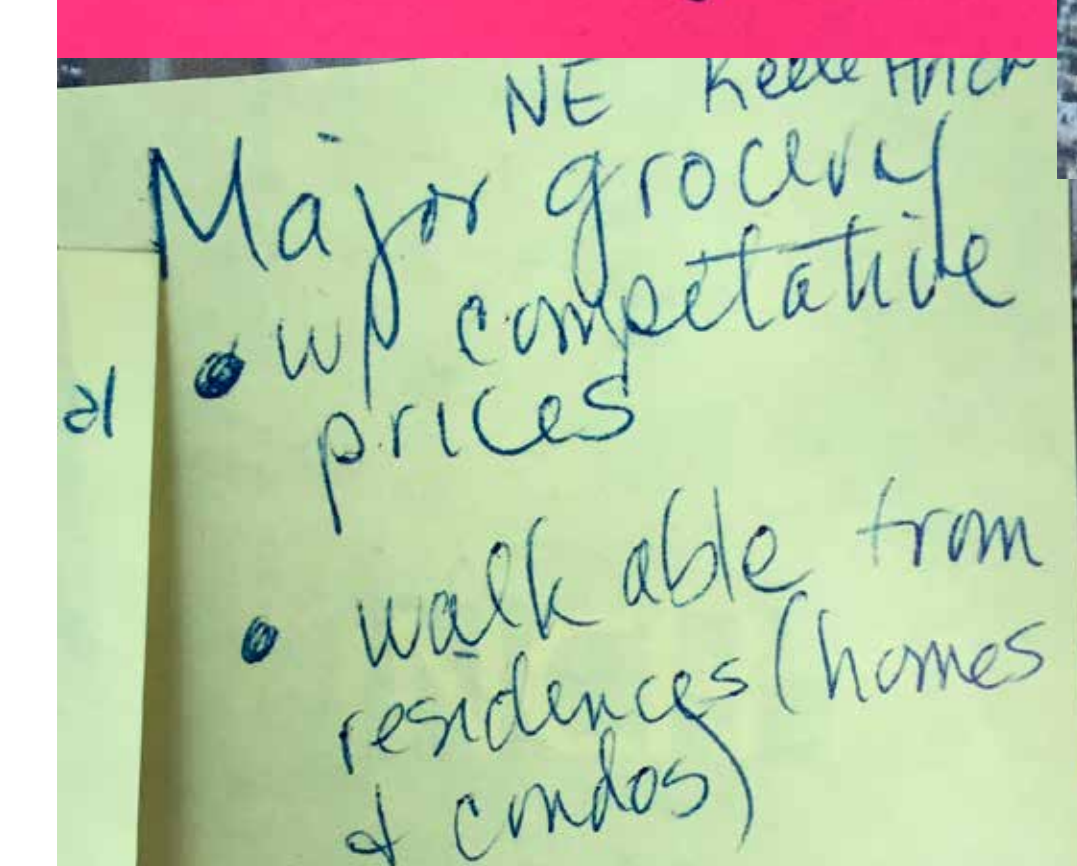 NE Keele Finch
Major grocery
• w/ competative
prices
al
• walkable from
residences (homes
& condos)